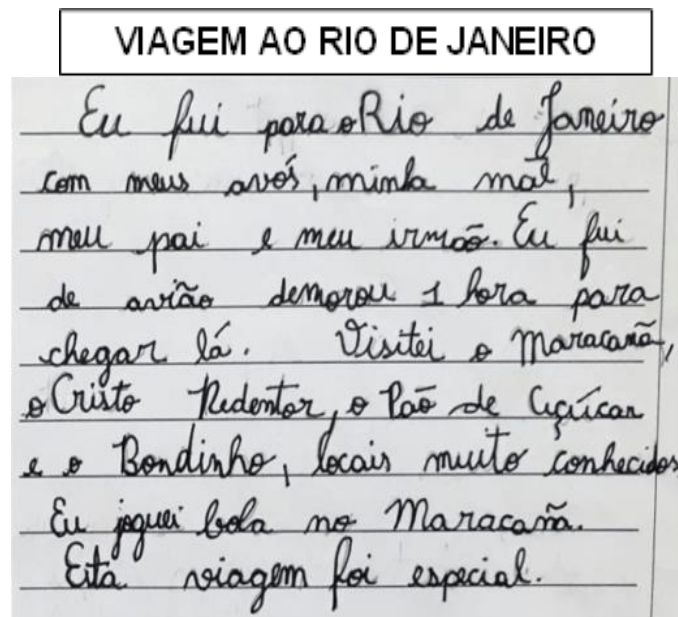 VIAGEM AO RIO DE JANEIRO
Eu fui para o Rio de Janeiro
com meus avós, minha mãe,
meu pai e meu irmão. Eu fui
de avião demorou 1 hora para
chegar lá. Visitei o Maracanã,
o Cristo Redentor, o Pão de Açúcar
e o Bondinho, locais muito conhecidos
Eu joguei bola no Maracanã.
Esta viagem foi especial.